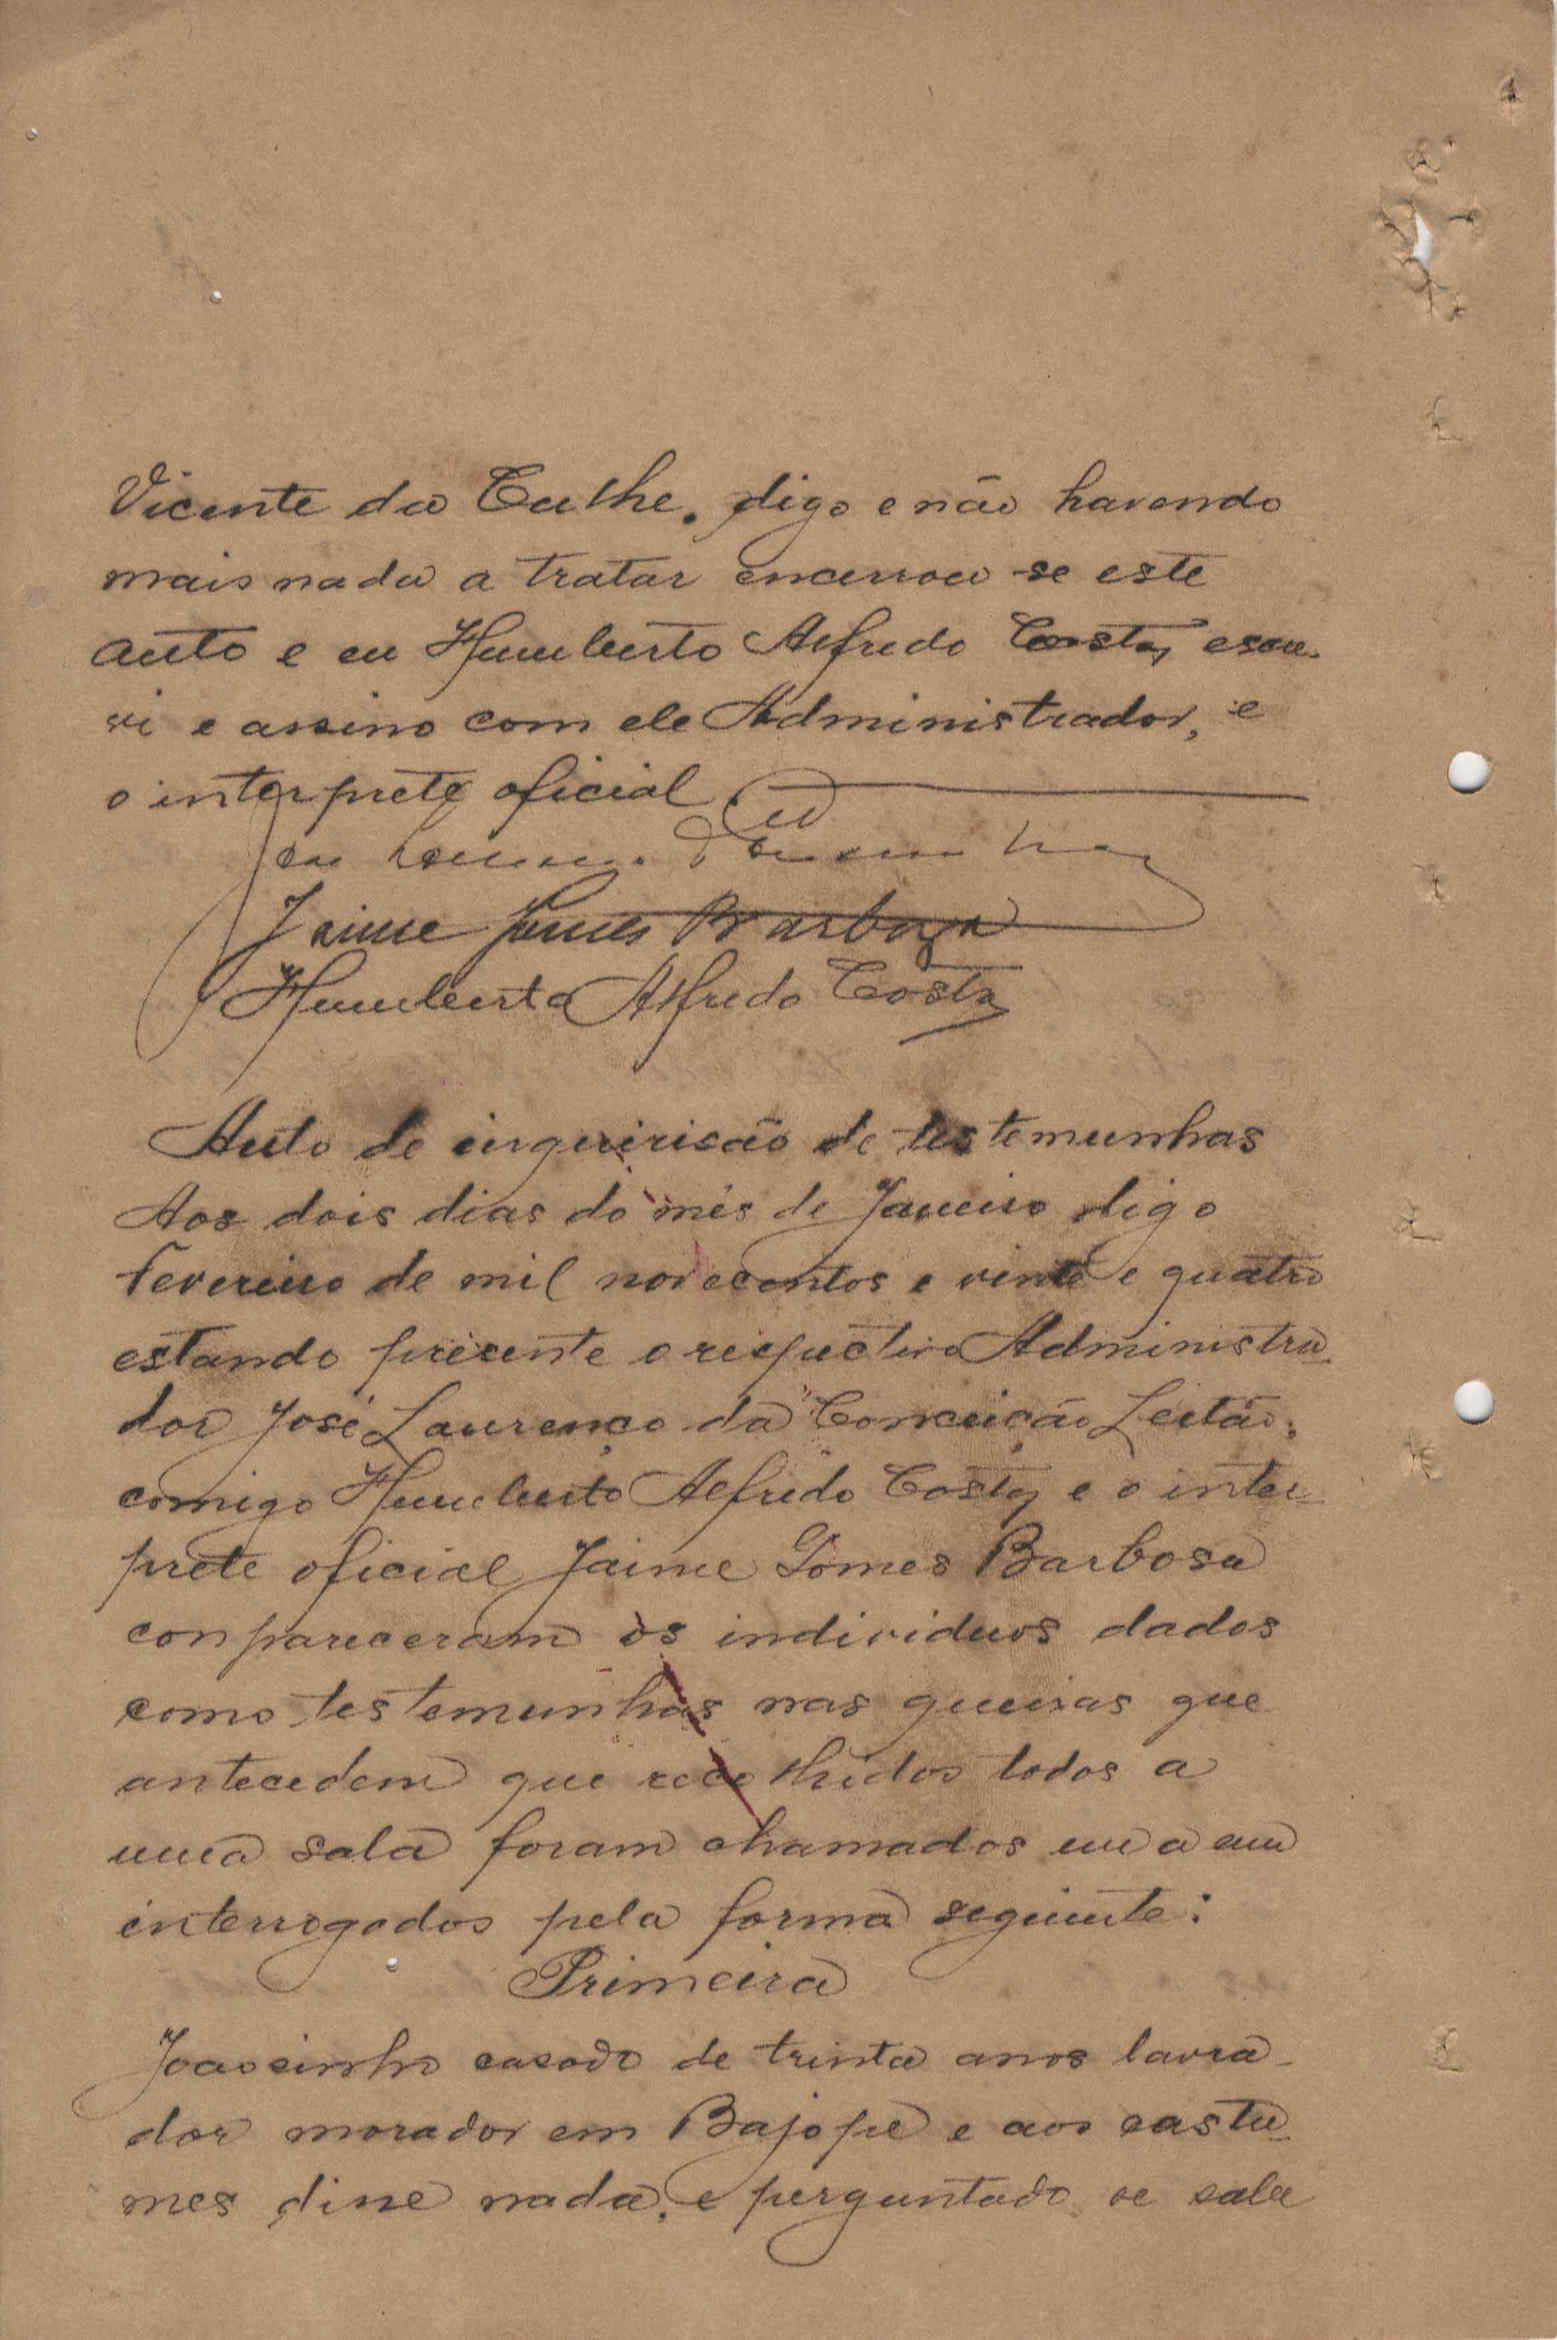 Vicente da Calhe. digo e não havendo
mais nada a tratar encerrou-se este
auto e eu Humberto Alfredo Costa, escre-
vi e assino com ele Administrador, e
o interprete oficial
Jaime Gomes Barbosa
Humberto Alfredo Costa
Auto de inquirisão de testemunhas
Aos dois dias do mês de Janeiro digo
Fevereiro de mil novecentos e vinte e quatro
estando presente o respectivo Administra-
dor José Laurenço da Conceição Leitão,
comigo Humberto Alfredo Costa e o inter-
prete oficial Jaime Gomes Barbosa
conpareceram os individuos dados
como testemunhas nas queixas que
antecedem que recolhidos todos a
uma sala foram chamados um a um
interrogados pela forma seguinte:
Primeira
Joaosinho casado de trinta anos lavra-
dor morador em Bajope e aos costu-
mes disse nada, e perguntado se sabe